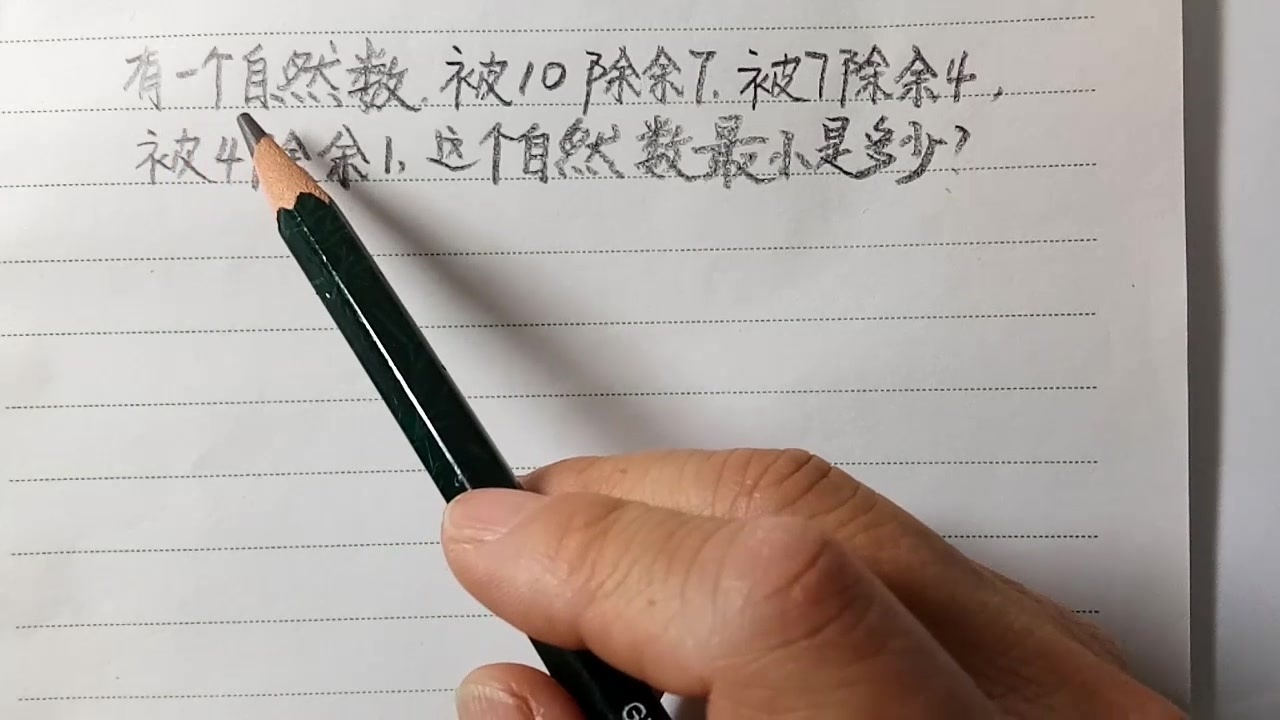 有一个自然数.被10除余7.被7除余4,
被4除余1.这个自然数最小是多少?
G